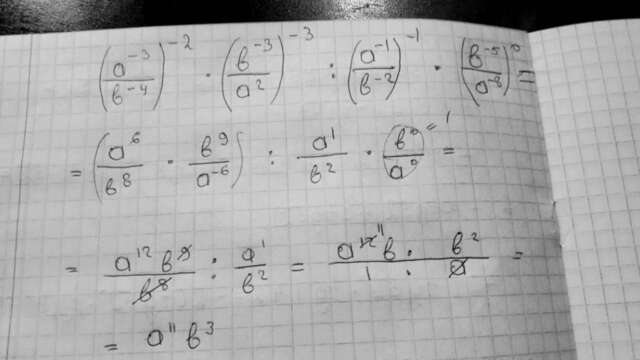 (a⁻³/b⁻⁴)⁻² · (b⁻³/a²)⁻³ : (a⁻¹/b⁻²)⁻¹ · (b⁻⁵/a⁻⁸)⁰ =
= (a⁶/b⁸ · b⁹/a⁻⁶) : a¹/b² · (b⁰/a⁰)⁼¹ =
= a¹²b⁹/b⁸ : a¹/b² = a¹²¹¹b · b²/1 · a =
= a¹¹b³